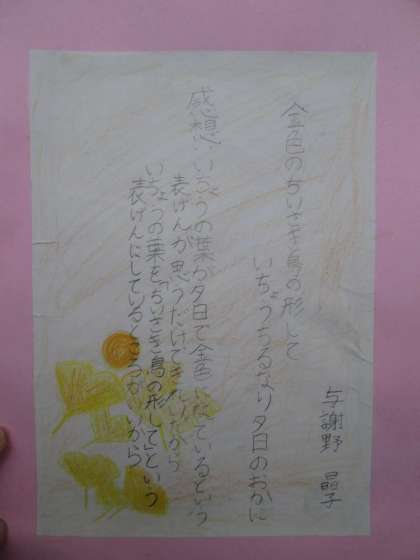 金色のちいさき鳥の形して
いちょうちるなり夕日のおかに
与謝野 晶子
感想・いちょうの葉が夕日で金色になているという
表げんが思うだけできれいだから
いちょうの葉を「ちいさき鳥の形して」という
表げんにしているところがいいから